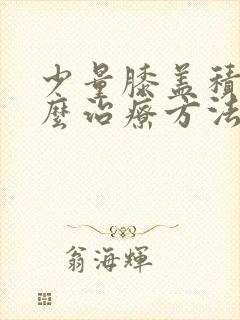 少量膝盖積
麽治療方法
翁海輝